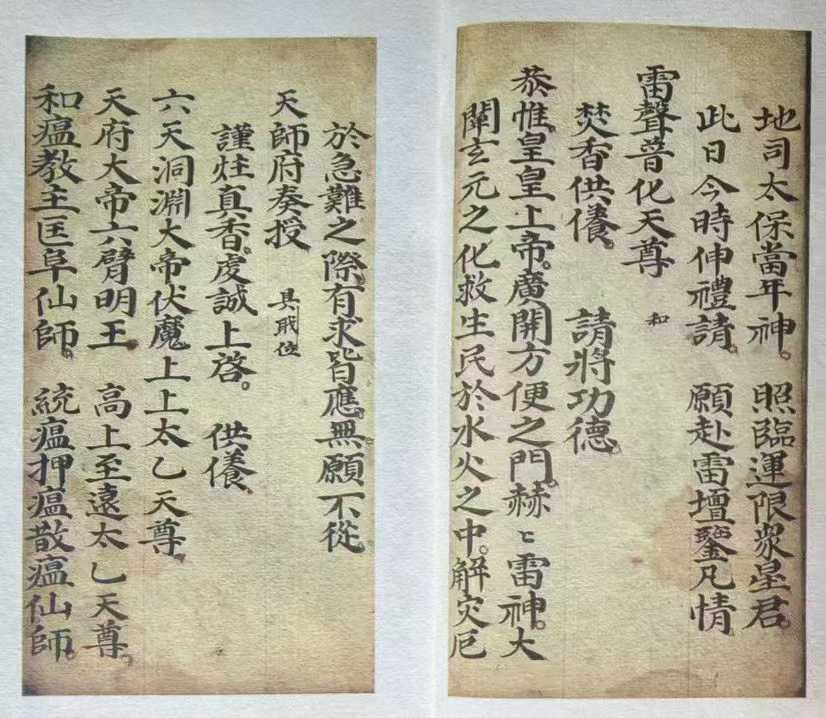 地司太保當年神。照臨運限衆星君。
此日今時伸禮請。願赴雷壇鑒凡情
雷聲普化天尊 和
焚香供儀。請將功德。
恭惟皇皇上帝。廣開方便之門。赫〻雷神。大
闡玄元之化救生民於水火之中。解灾厄
於急難之際。有求皆應。無願不從
天師府奏授 具戢位
謹炷真香。虔誠上啓。供儀。
六天洞淵大帝伏魔上上太乙天尊。
天府大帝六臂明王。高上至遠太乙天尊。
和瘟教主匡阜仙師。統瘟押瘟散瘟仙師。